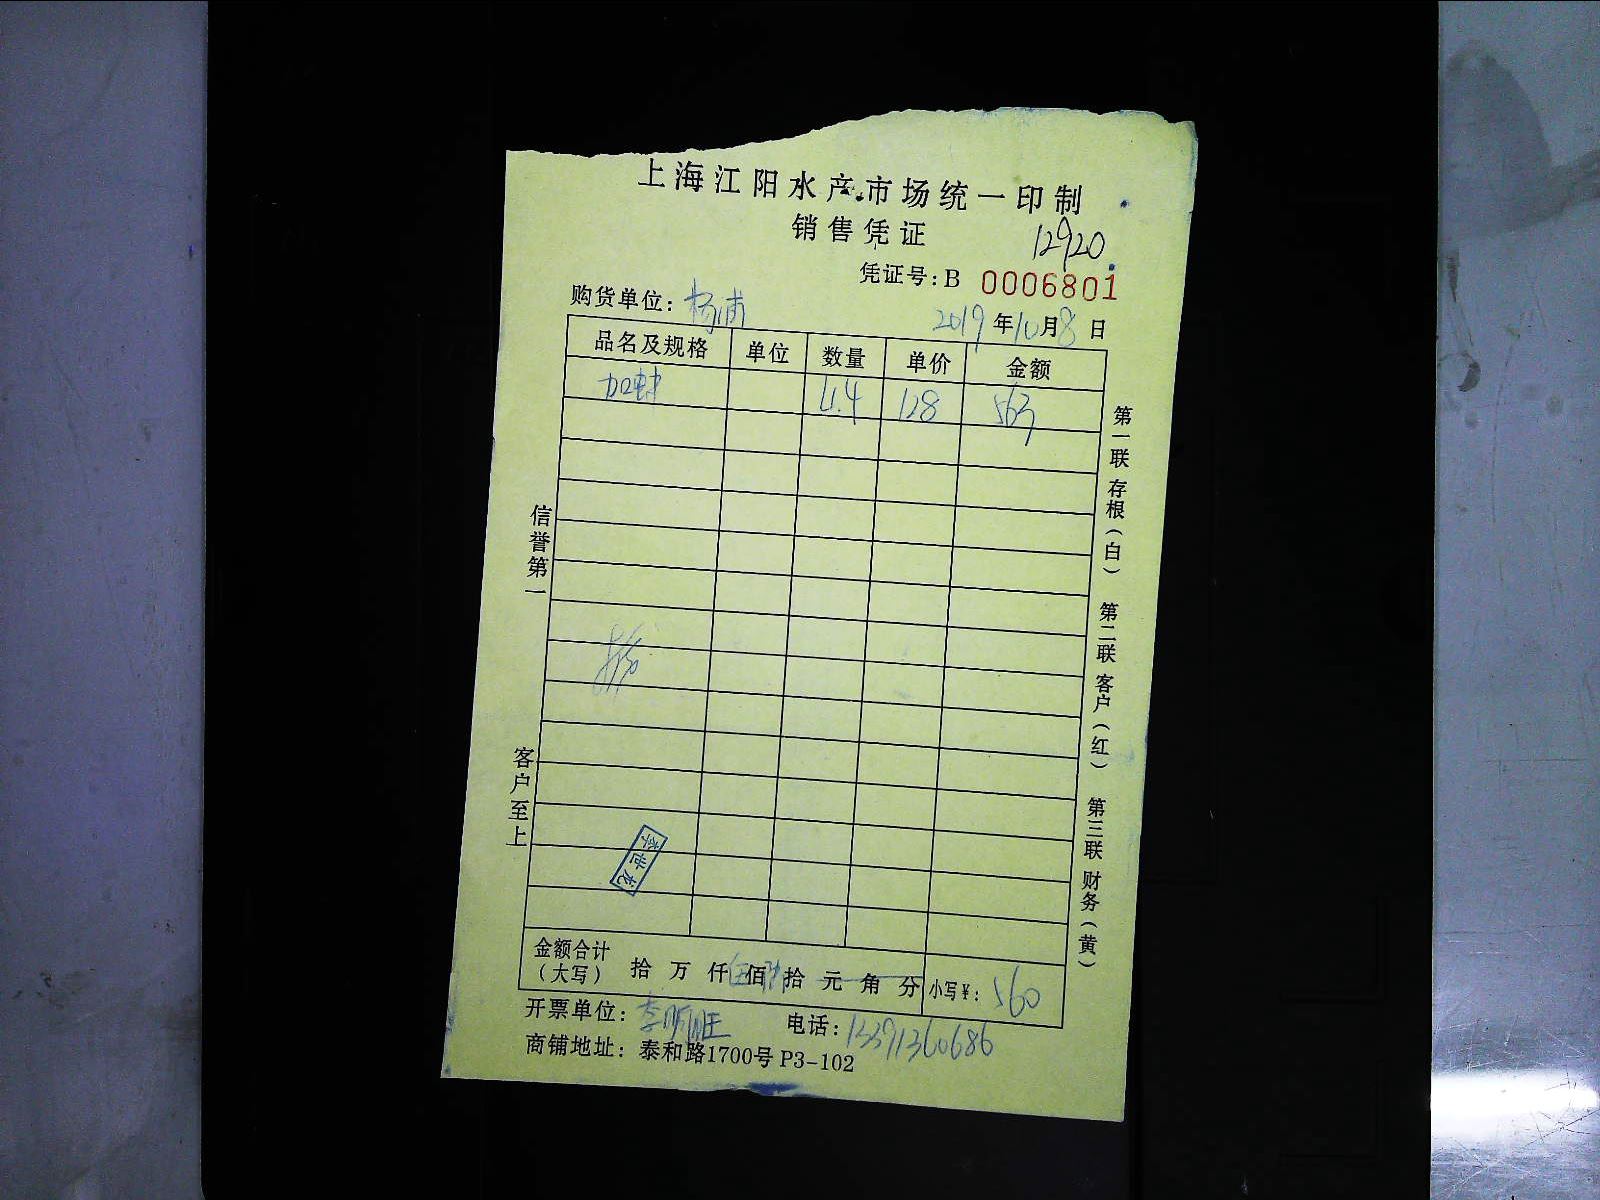 上海江阳水产市场统一印制
销售凭证
12920
凭证号:B 0006801
购货单位:杨浦 2019年10月8日
品名及规格 单位 数量 单价 金额
加蚌 4.4 128 563
信誉第一
客户至上
第一联 存根(白) 第二联 客户(红) 第三联 财务(黄)
李世龙
金额合计
(大写) 拾 万 仟 伍 佰 陆 拾 元 角 分 小写¥:560
开票单位: 电话:13391360686
商铺地址:泰和路1700号 P3-102